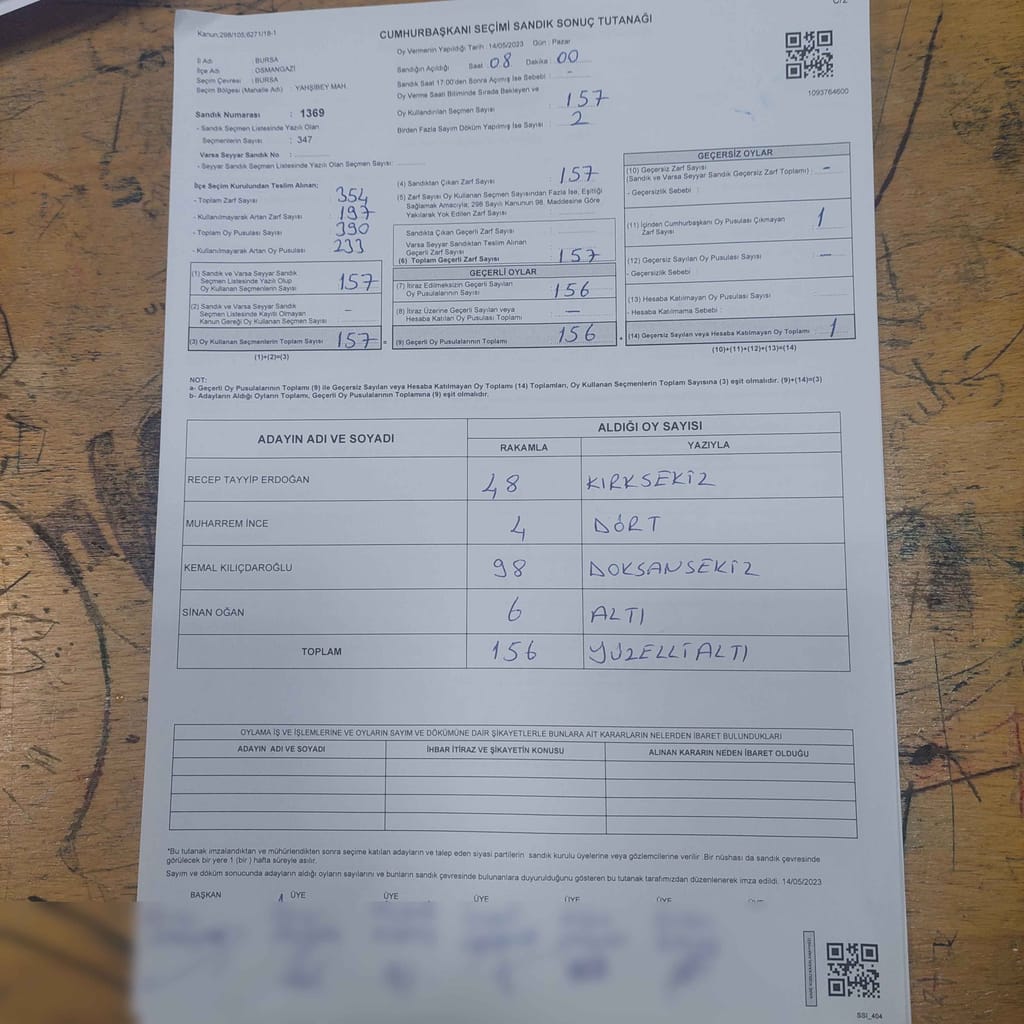 CUMHURBAŞKANI SEÇİMİ SANDIK SONUÇ TUTANAĞI
Kanun;298/105;6271/18-1
Oy Vermenin Yapıldığı Tarih : 14/05/2023 Gün : Pazar
İl Adı : BURSA
İlçe Adı : OSMANGAZİ
Seçim Çevresi : BURSA
Seçim Bölgesi (Mahalle Adı) : YAHŞİBEY MAH.
Sandığın Açıldığı Saat : 08 Dakika : 00
Sandık Saat 17:00'den Sonra Açımış İse Sebebi : -
Oy Verme Saati Bitiminde Sırada Bekleyen ve
Oy Kullandırılan Seçmen Sayısı : 157
Birden Fazla Sayım Döküm Yapılmış İse Sayısı : 2
1093764600
Sandık Numarası : 1369
- Sandık Seçmen Listesinde Yazılı Olan
Seçmenlerin Sayısı : 347
Varsa Seyyar Sandık No :
- Seyyar Sandık Seçmen Listesinde Yazılı Olan Seçmen Sayısı:
İlçe Seçim Kurulundan Teslim Alınan;
- Toplam Zarf Sayısı : 354
- Kullanılmayarak Artan Zarf Sayısı : 197
- Toplam Oy Pusulası Sayısı : 390
- Kullanılmayarak Artan Oy Pusulası : 233
(1) Sandık ve Varsa Seyyar Sandık
Seçmen Listesinde Yazılı Olup
Oy Kullanan Seçmenlerin Sayısı : 157
(2) Sandık ve Varsa Seyyar Sandık
Seçmen Listesinde Kayıtlı Olmayan
Kanun Gereği Oy Kullanan Seçmen Sayısı : -
(3) Oy Kullanan Seçmenlerin Toplam Sayısı : 157 =
(1)+(2)=(3)
(4) Sandıktan Çıkan Zarf Sayısı : 157
(5) Zarf Sayısı Oy Kullanan Seçmen Sayısından Fazla İse, Eşitliği
Sağlamak Amacıyla; 298 Sayılı Kanunun 98. Maddesine Göre
Yakılarak Yok Edilen Zarf Sayısı :
Sandıkta Çıkan Geçerli Zarf Sayısı :
Varsa Seyyar Sandıktan Teslim Alınan
Geçerli Zarf Sayısı :
(6) Toplam Geçerli Zarf Sayısı : 157
GEÇERLİ OYLAR
(7) İtiraz Edilmeksizin Geçerli Sayılan
Oy Pusulalarının Sayısı : 156
(8) İtiraz Üzerine Geçerli Sayılan veya
Hesaba Katılan Oy Pusulası Toplamı : -
(9) Geçerli Oy Pusulalarının Toplamı : 156 +
GEÇERSİZ OYLAR
(10) Geçersiz Zarf Sayısı : -
(Sandık ve Varsa Seyyar Sandık Geçersiz Zarf Toplamı)
- Geçersizlik Sebebi :
(11) İçinden Cumhurbaşkanı Oy Pusulası Çıkmayan
Zarf Sayısı : 1
(12) Geçersiz Sayılan Oy Pusulası Sayısı : -
- Geçersizlik Sebebi
(13) Hesaba Katılmayan Oy Pusulası Sayısı :
- Hesaba Katılmama Sebebi :
(14) Geçersiz Sayılan veya Hesaba Katılmayan Oy Toplamı : 1
(10)+(11)+(12)+(13)=(14)
NOT:
a- Geçerli Oy Pusulalarının Toplamı (9) ile Geçersiz Sayılan veya Hesaba Katılmayan Oy Toplamı (14) Toplamları, Oy Kullanan Seçmenlerin Toplam Sayısına (3) eşit olmalıdır. (9)+(14)=(3)
b- Adayların Aldığı Oyların Toplamı, Geçerli Oy Pusulalarının Toplamına (9) eşit olmalıdır.
ADAYIN ADI VE SOYADI
ALDIĞI OY SAYISI
RAKAMLA YAZIYLA
RECEP TAYYİP ERDOĞAN 48 KIRKSEKİZ
MUHARREM İNCE 4 DÖRT
KEMAL KILIÇDAROĞLU 98 DOKSANSEKİZ
SİNAN OĞAN 6 ALTI
TOPLAM 156 YÜZELLİALTI
OYLAMA İŞ VE İŞLEMLERİNE VE OYLARIN SAYIM VE DÖKÜMÜNE DAİR ŞİKAYETLERLE BUNLARA AİT KARARLARIN NELERDEN İBARET BULUNDUKLARI
ADAYIN ADI VE SOYADI İHBAR İTİRAZ VE ŞİKAYETİN KONUSU ALINAN KARARIN NEDEN İBARET OLDUĞU
*Bu tutanak imzalandıktan ve mühürlendikten sonra seçime katılan adayların ve talep eden siyasi partilerin sandık kurulu üyelerine veya gözlemcilerine verilir .Bir nüshası da sandık çevresinde
görülecek bir yere 1 (bir ) hafta süreyle asılır.
Sayım ve döküm sonucunda adayların aldığı oyların sayılarını ve bunların sandık çevresinde bulunanlara duyurulduğunu gösteren bu tutanak tarafımızdan düzenlenerek imza edildi. 14/05/2023
BAŞKAN ÜYE ÜYE ÜYE ÜYE ÜYE
SSI_404